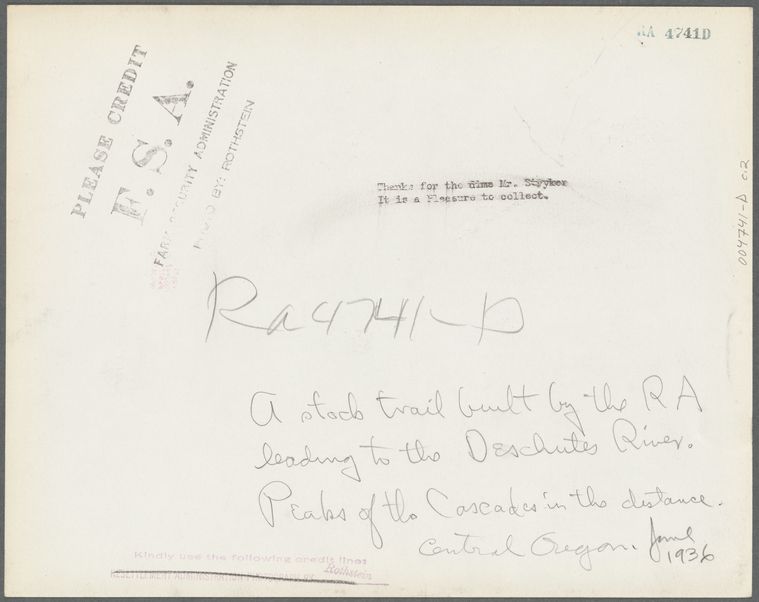 RA 4741D
PLEASE CREDIT
F. S. A.
FARM SECURITY ADMINISTRATION
PHOTO BY: ROTHSTEIN
Thanks for the dime Mr. Stryker
It is a Pleasure to collect.
004741-D c.2
Ra 4741-D
A stock trail built by the RA
leading to the Deschutes River.
Peaks of the Cascades in the distance.
Central Oregon. June
1936
Kindly use the following credit line:
RESETTLEMENT ADMINISTRATION PHOTOGRAPH BY
Rothstein